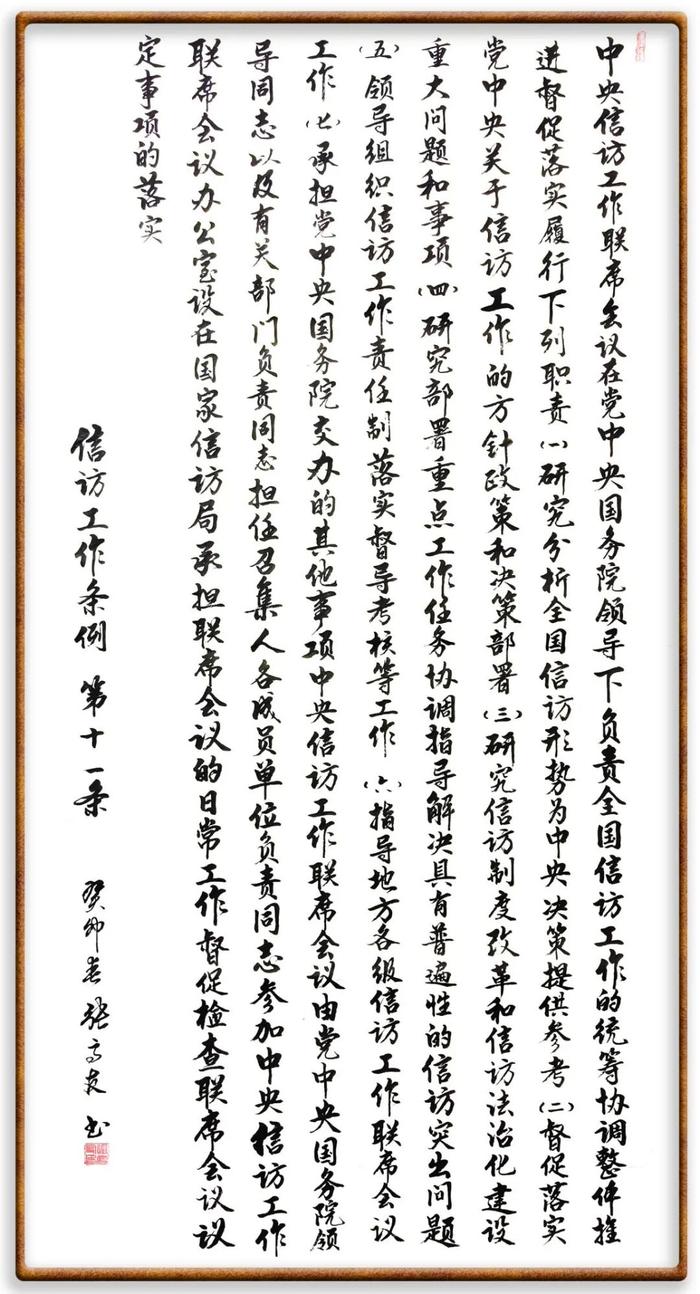 中央信访工作联席会议在党中央国务院领导下负责全国信访工作的统筹协调整体推
进督促落实履行下列职责(一)研究分析全国信访形势为中央决策提供参考(二)督促落实
党中央关于信访工作的方针政策和决策部署(三)研究信访制度改革和信访法治化建设
重大问题和事项(四)研究部署重点工作任务协调指导解决具有普遍性的信访突出问题
(五)领导组织信访工作责任制落实督导考核等工作(六)指导地方各级信访工作联席会议
工作(七)承担党中央国务院交办的其他事项中央信访工作联席会议由党中央国务院领
导同志以及有关部门负责同志担任召集人各成员单位负责同志参加中央信访工作
联席会议办公室设在国家信访局承担联席会议的日常工作督促检查联席会议议
定事项的落实
信访工作条例 第十一条 癸卯春张高友书